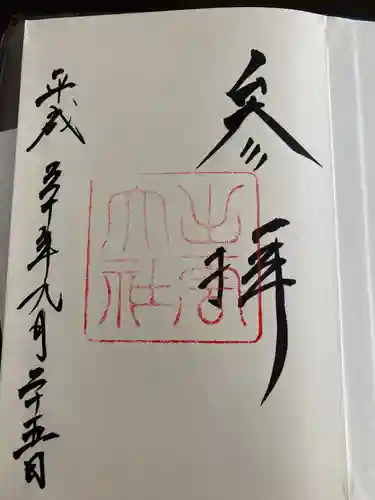 参拝
出雲
大社
平成三十年九月二十五日